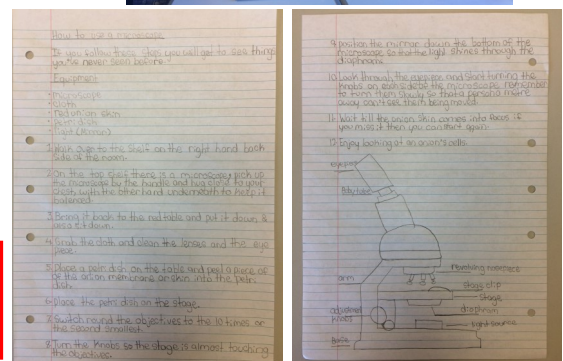 How to use a microscope
If you follow these steps you will get to see things
you've never seen before.
Equipment
• microscope
• cloth
• red onion skin
• petri dish
• light (mirror)
1. Walk over to the shelf on the right hand back
side of the room.
2. On the top shelf there is a microscope, pick up
the microscope by the handle and hug close to your
chest with the other hand underneath to help it
balanced.
3. Bring it back to the red table and put it down
as you set down.
4. Grab the cloth and clean the lenses and the eye
piece.
5. Place a petri dish on the table and peel a piece of
of the onion membrane or skin into the petri
dish.
6. Place the petri dish on the stage.
7. Switch round the objectives to the 10 times or
the second smallest.
8. Turn the knobs so the stage is almost touching
the objectives.
9. position the mirror down the bottom of the
microscope so that the light shines through the
diaphragm.
10. Look through the eyepiece and start turning the
knobs on each side of the microscope. Remember
to turn them slowly so that a person a metre
away can't see them being moved.
11. Wait till the onion skin comes into focus if
you miss it then you can start again.
12. Enjoy looking at an onion's cells.
eyepiece
Body tube
Revolving nosepiece
arm
stage clip
stage
diaphram
adjustment
knobs
light source
Base